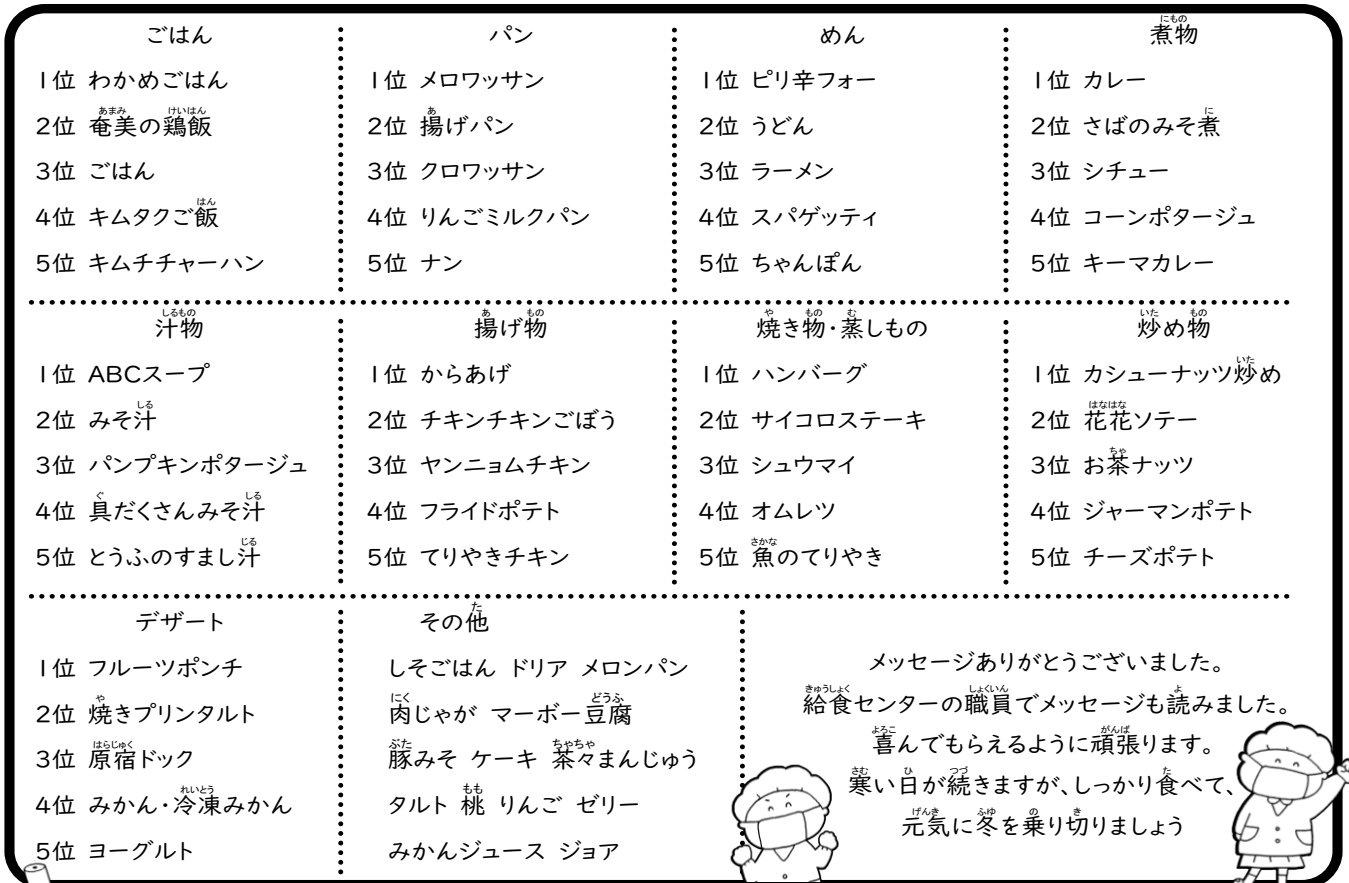 ごはん
1位 わかめごはん
2位 奄美の鶏飯
3位 ごはん
4位 キムタクご飯
5位 キムチチャーハン
パン
1位 メロワッサン
2位 揚げパン
3位 クロワッサン
4位 りんごミルクパン
5位 ナン
めん
1位 ピリ辛フォー
2位 うどん
3位 ラーメン
4位 スパゲッティ
5位 ちゃんぽん
煮物
1位 カレー
2位 さばのみそ煮
3位 シチュー
4位 コーンポタージュ
5位 キーマカレー
汁物
1位 ABCスープ
2位 みそ汁
3位 パンプキンポタージュ
4位 具だくさんみそ汁
5位 とうふのすまし汁
揚げ物
1位 からあげ
2位 チキンチキンごぼう
3位 ヤンニョムチキン
4位 フライドポテト
5位 てりやきチキン
焼き物・蒸しもの
1位 ハンバーグ
2位 サイコロステーキ
3位 シュウマイ
4位 オムレツ
5位 魚のてりやき
炒め物
1位 カシューナッツ炒め
2位 花花ソテー
3位 お茶ナッツ
4位 ジャーマンポテト
5位 チーズポテト
デザート
1位 フルーツポンチ
2位 焼きプリンタルト
3位 原宿ドック
4位 みかん・冷凍みかん
5位 ヨーグルト
その他
しそごはん ドリア メロンパン
肉じゃが マーボー豆腐
豚みそ ケーキ 茶々まんじゅう
タルト 桃 りんご ゼリー
みかんジュース ジョア
メッセージありがとうございました。
給食センターの職員でメッセージも読みました。
喜んでもらえるように頑張ります。
寒い日が続きますが、しっかり食べて、
元気に冬を乗り切りましょう